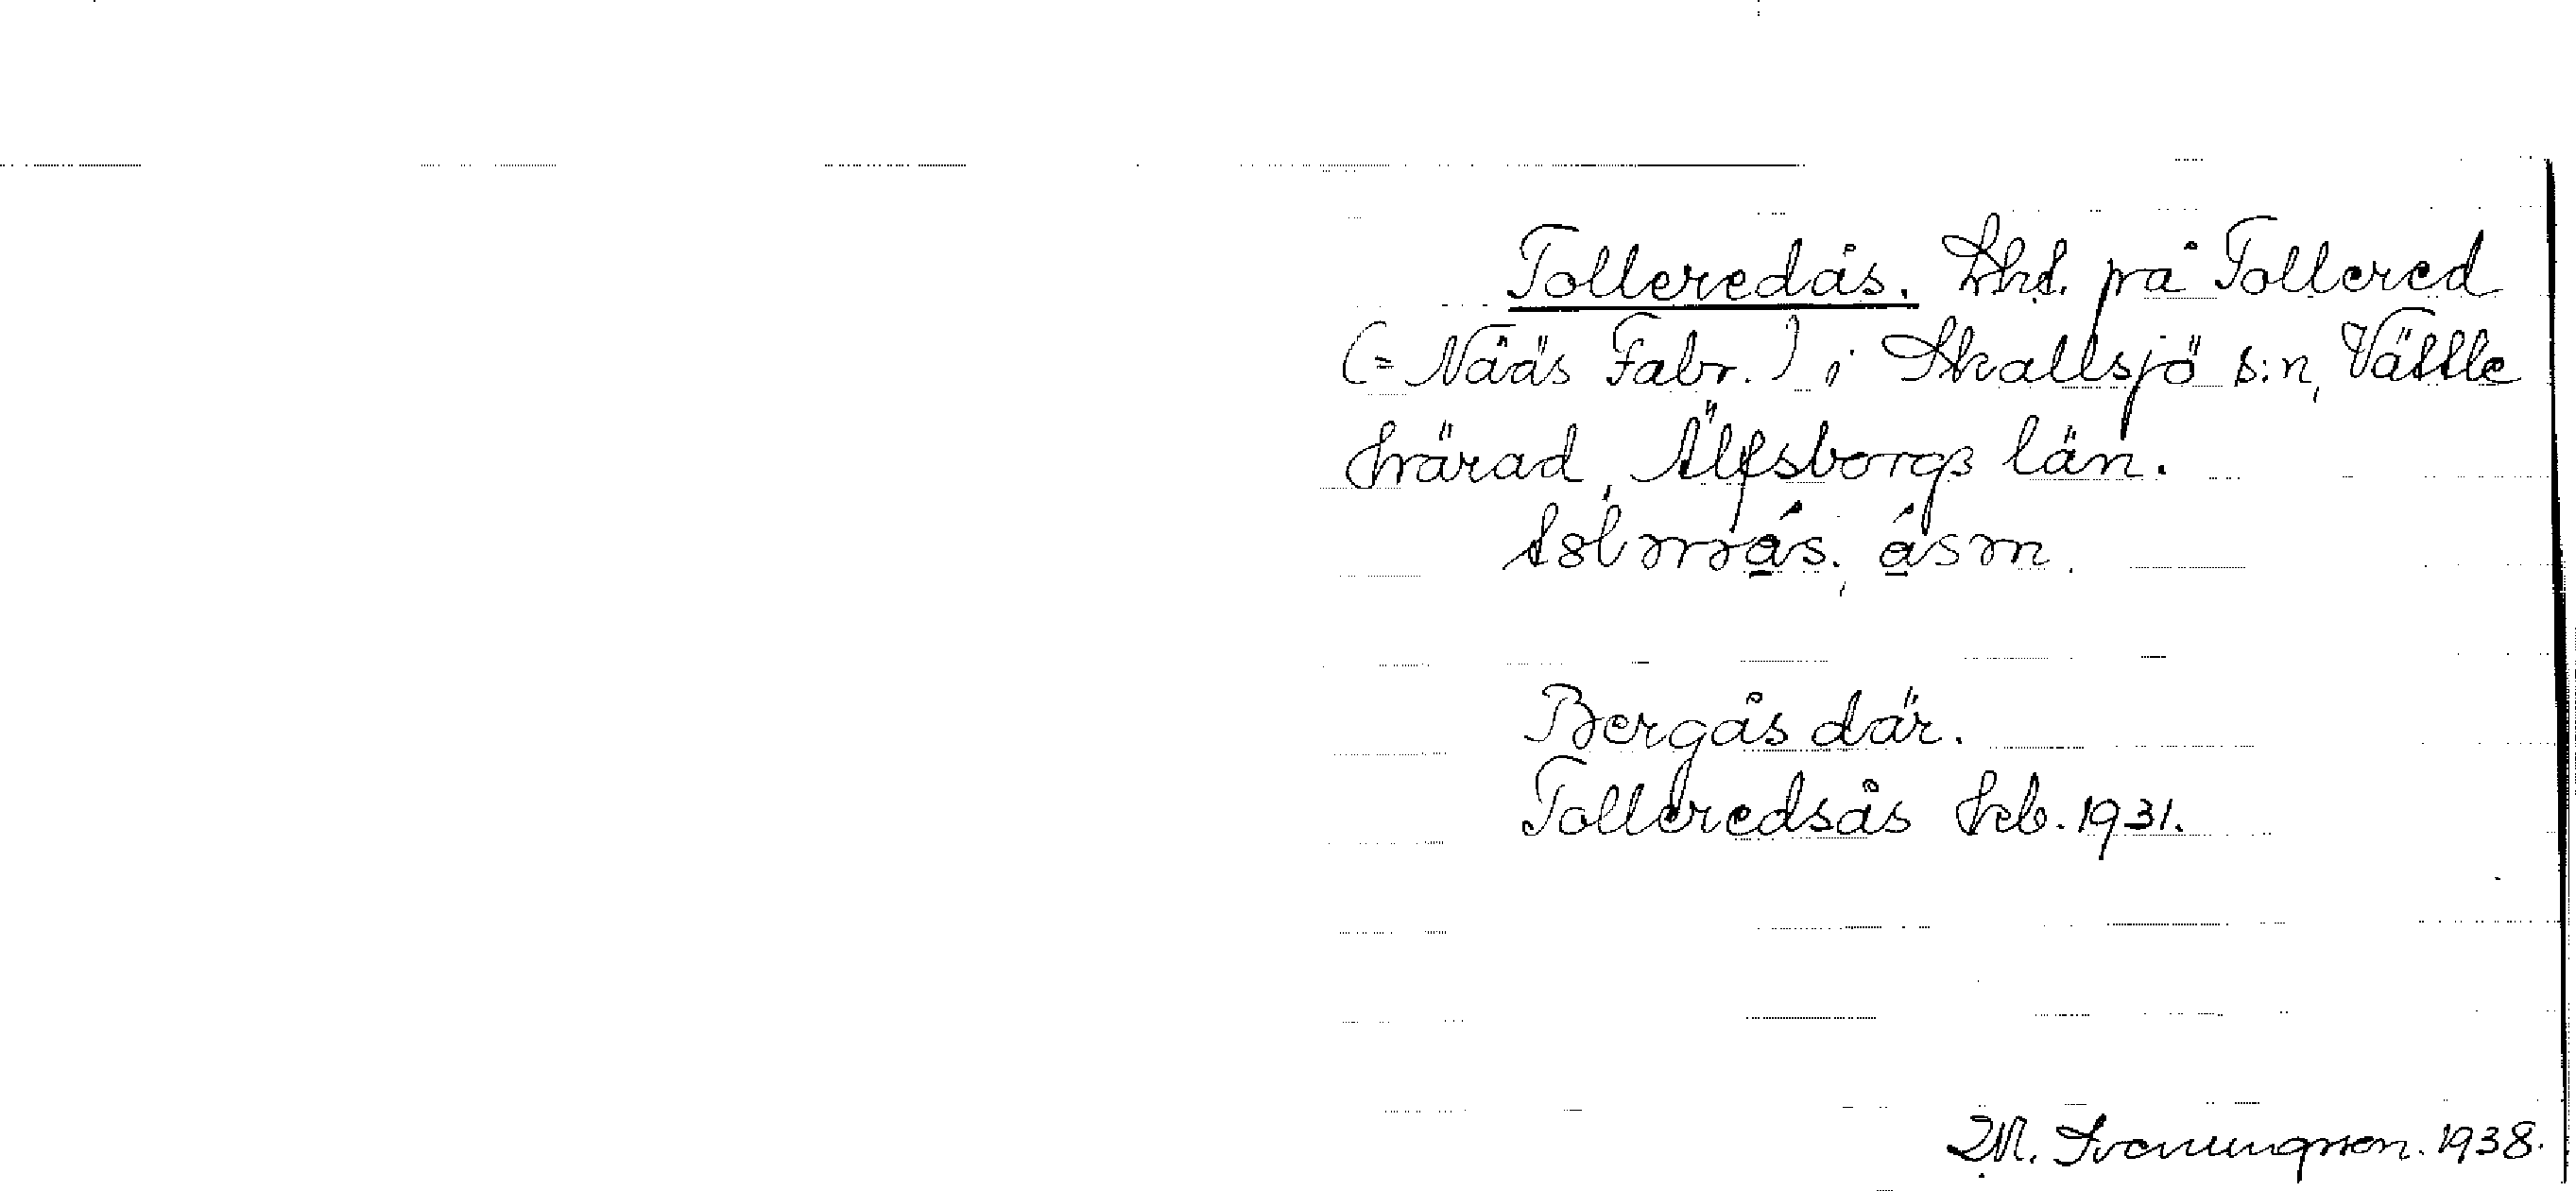 Tolleredås. Lht. på Tollered
(= Nääs Fabr.) i Skallsjö s:n, Vättle
härad, Älfsborgs län.
Bergås där.
Tolleredsås Jrb. 1931.
M. Svenungsson. 1938.